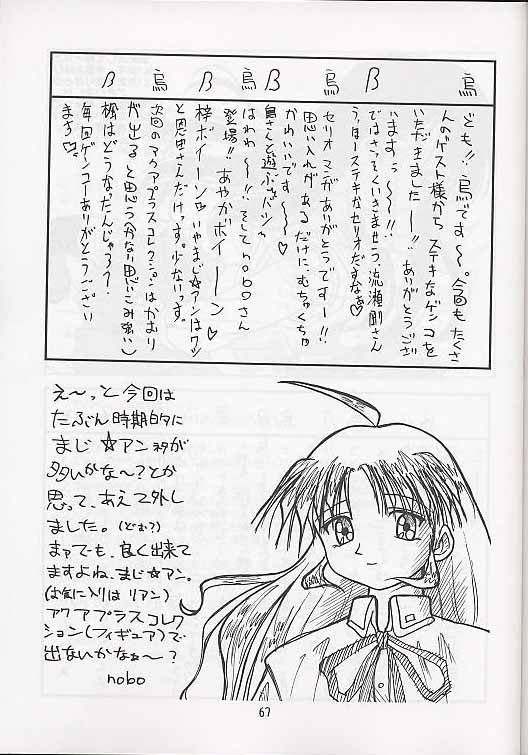 烏
ども!!烏です～～。今回もたくさ
んのゲスト様から ステキなゲンコを
いただきましたー!!ありがとうござ
いますぅ～～!!
ではさっそくいきませう。流瀬剛さん
β
うほーステキなセリオだすなぁ♡
烏
セリオマンガありがとうですー!!
思い入れが あるだけにむちゃくちゃ
かわいいです～～♡
β
烏さんと遊ぶさバシッ
烏
はわわ～～!!そしてnoboさん
登場!!あやかボイーン♡
β
梓ボイーン♡いやまじ☆アンはワシ
と恩田さんだけっす。少ないっす。
烏
次回のアクアプラスコレクションはかおり
が出ると思う（分ない思いこみ強い）
β
楓はどうなったんじゃろ？
毎回ゲンコーありがとうござい
ます♡
え～っと今回は
たぶん時期的に
まじ☆アンネタが
多いかな～？とか
思って、あえて外し
ました。(どむ？)
まァでも、良く出来て
ますよね、まじ☆アン。
(お気に入りはリアン)
アクアプラスコレク
ション(フィギュア)で
出ないかなぁ～？
nobo
67